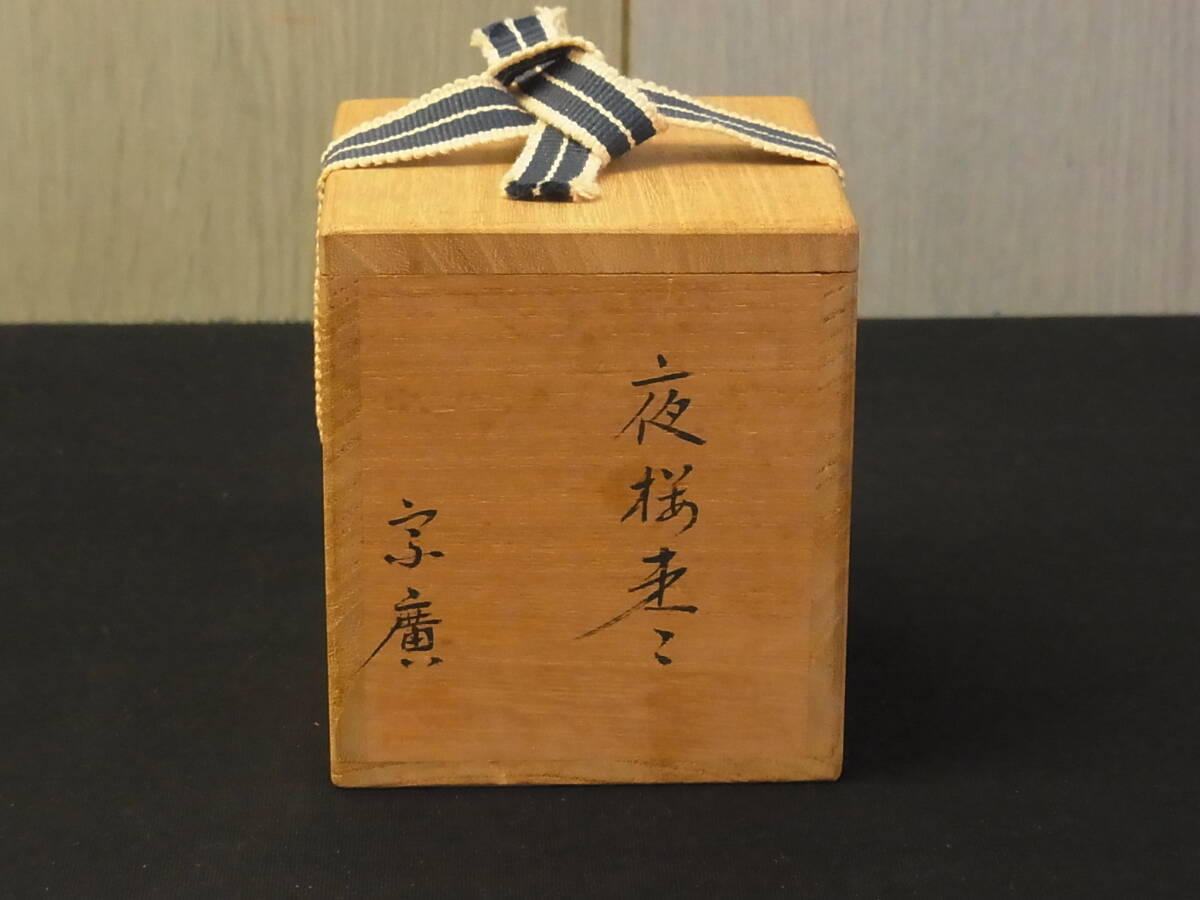 夜桜棗
宗廣